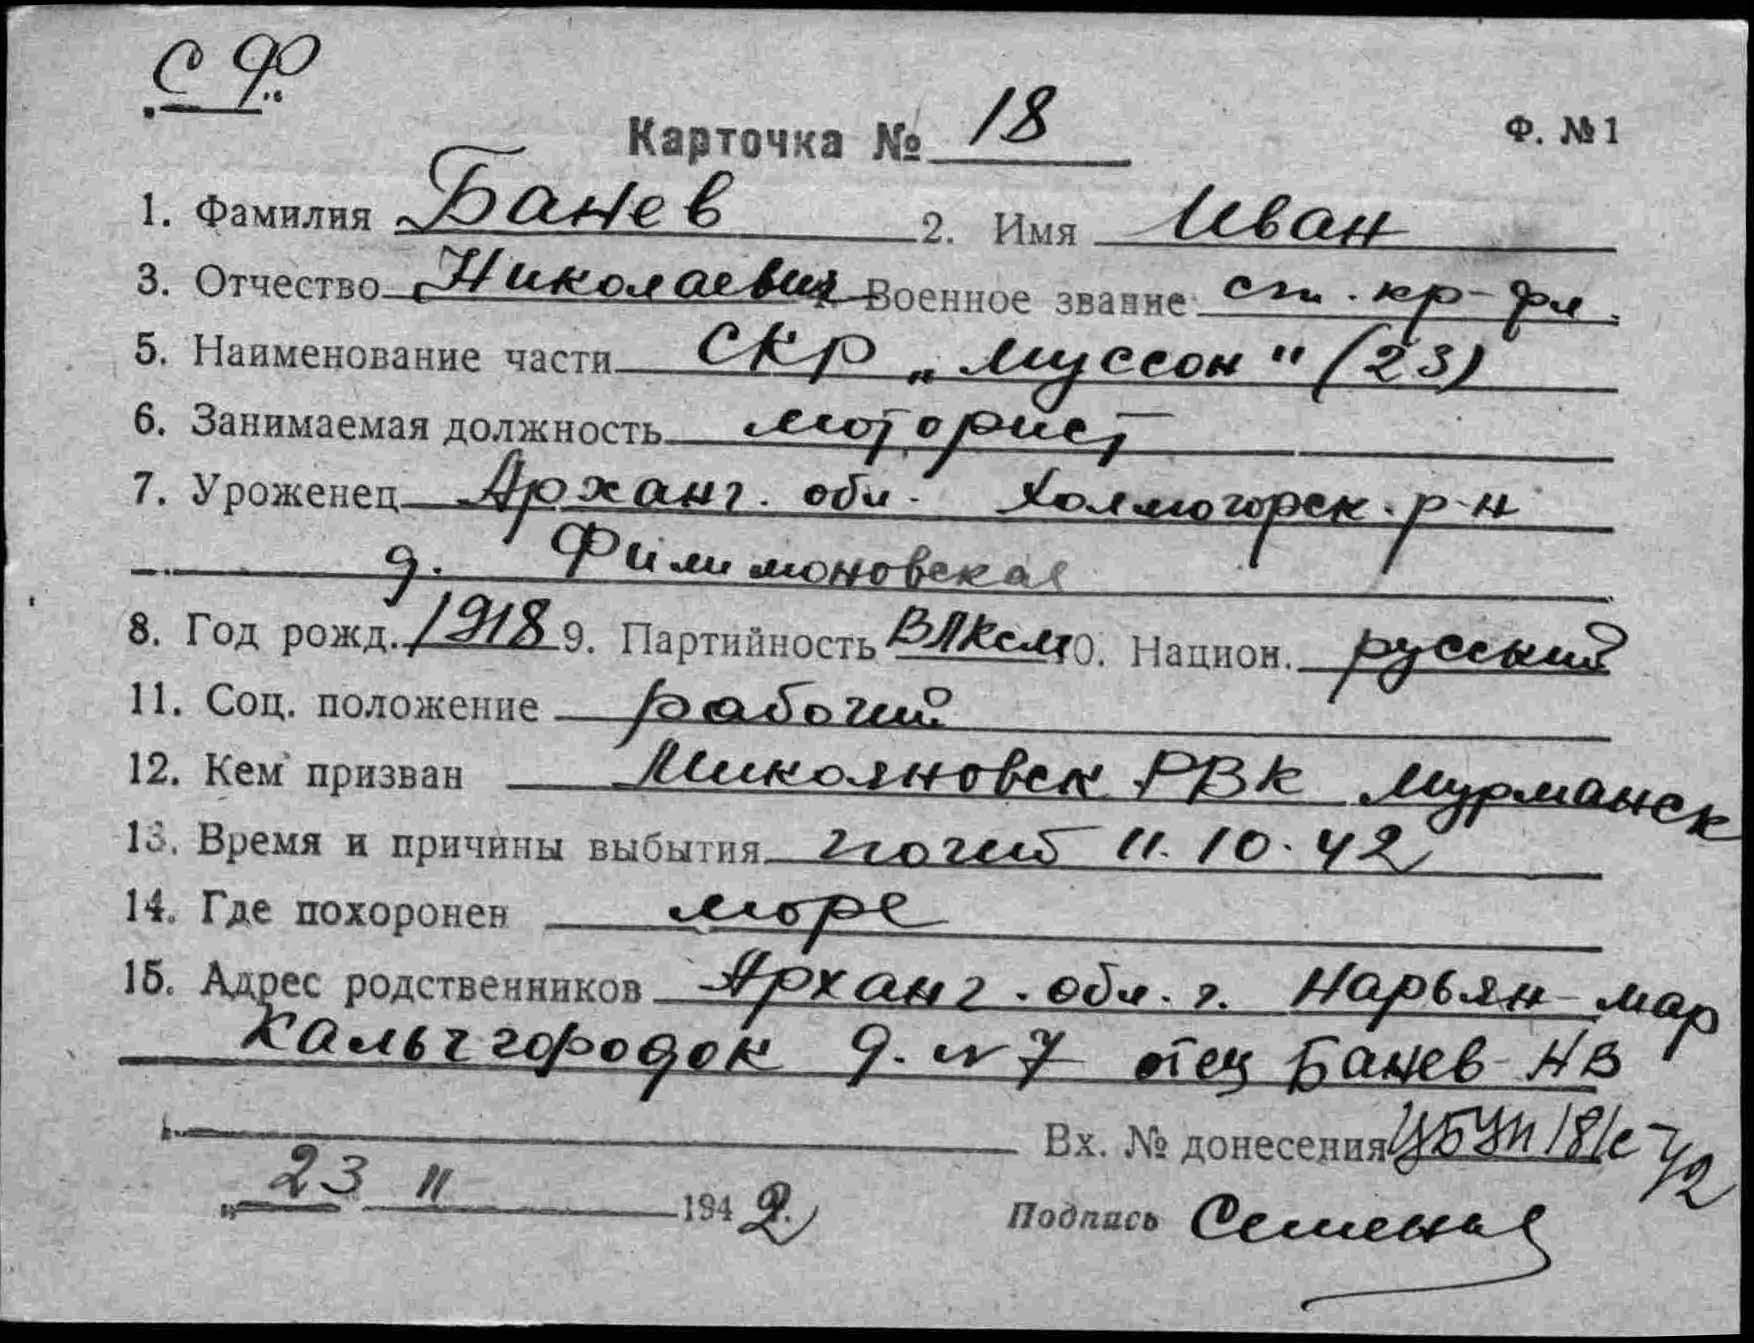 СФ
Карточка № 18 Ф. №1
1. Фамилия Банев 2. Имя Иван
3. Отчество Николаевич Военное звание ст. кр-фл.
5. Наименование части СКР „Муссон" (23)
6. Занимаемая должность моторист
7. Уроженец Арханг. обл. Холмогорск. р-н
д. Филимоновская
8. Год рожд. 1918 9. Партийность ВЛКСМ 10. Национ. русский
11. Соц. положение рабочий
12. Кем призван Микояновск РВК Мурманск
13. Время и причины выбытия погиб 11.10.42
14. Где похоронен море
15. Адрес родственников Арханг. обл. г. Нарьян-Мар
городок д. № 7 отец Банев НВ
Вх. № донесения 18/с-42
„23 11 1942
Подпись Семенов